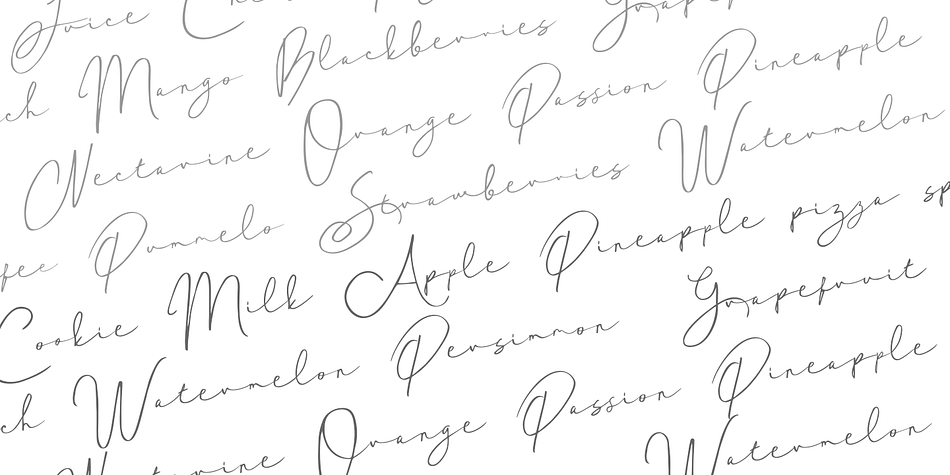 Juice
ch Mango Blackberries
Nectarine Orange Passion Pineapple
fee Pummelo Strawberries Watermelon
Cookie Milk Apple Pineapple pizza sp
ch Watermelon Persimmon Grapefruit
Nectarine Orange Passion Pineapple
Watermelon